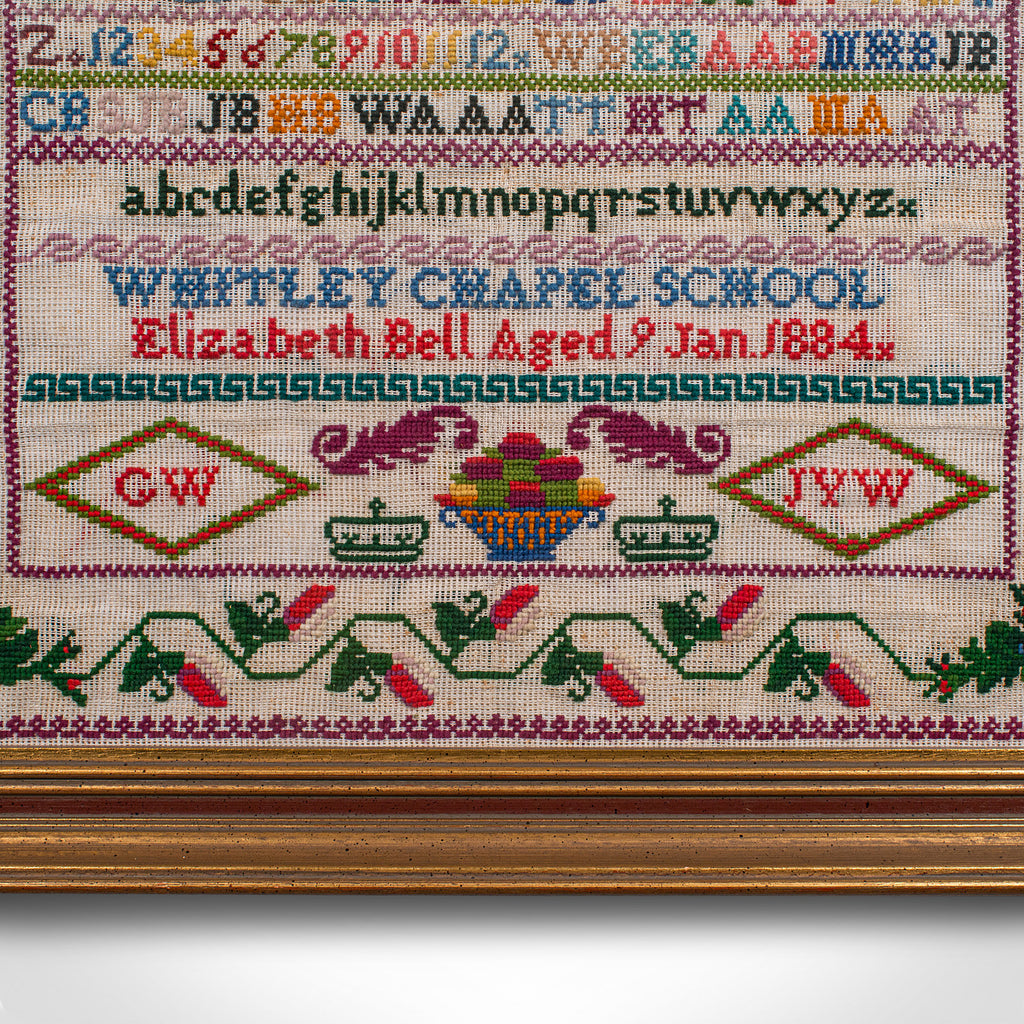 Z. 1 2 3 4 5 6 7 8 9 10 11 12x WB EB AAB MHB JB
CB SJB JB WB WA AA TT HT AA MA AT
abcdefghijklmnopqrstuvwxyzx
WHITLEY CHAPEL SCHOOL
Elizabeth Bell Aged 9 Jan. 1884x
GW JYW